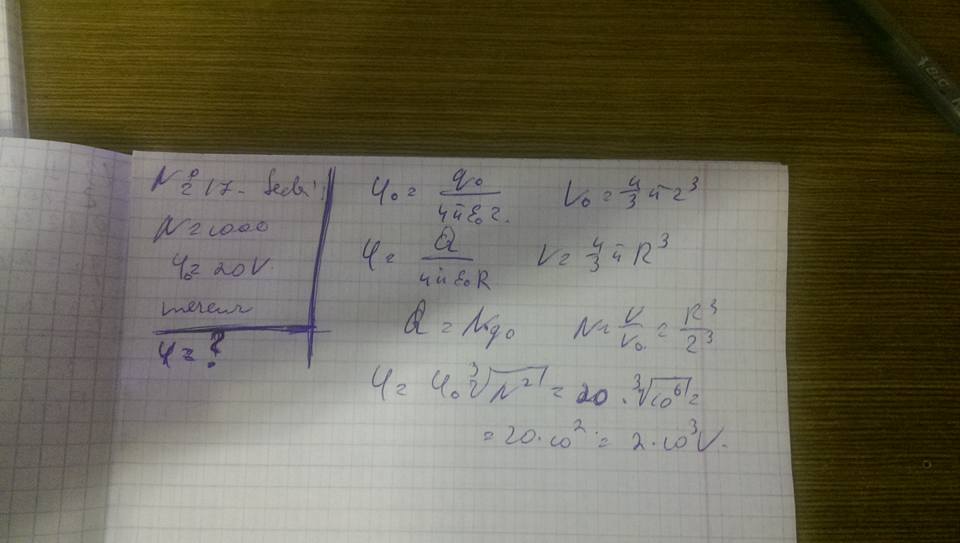 N° 17-
N = 1000
φ₀ = 20V.
mercur
φ = ?
φ₀ = q₀ / 4πε₀r. V₀ = 4/3 πr³
φ = Q / 4πε₀R V = 4/3 πR³
Q = Nq₀ N = V/V₀ = R³/r³
φ = φ₀ ∛N² = 20 · ∛10⁶ =
= 20·10² = 2·10³V.